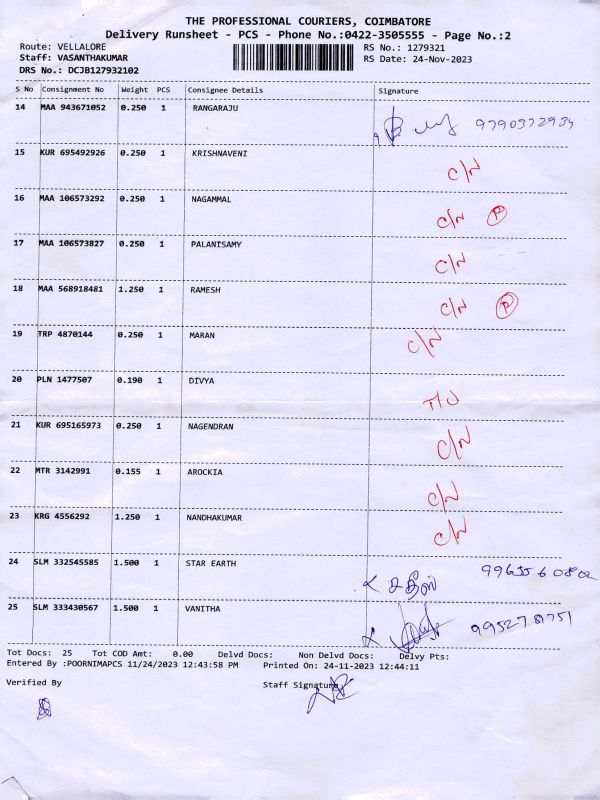 THE PROFESSIONAL COURIERS, COIMBATORE
Delivery Runsheet - PCS - Phone No.:0422-3505555 - Page No.:2
Route: VELLALORE RS No.: 1279321
Staff: VASANTHAKUMAR RS Date: 24-Nov-2023
DRS No.: DCJB127932102
S No Consignment No Weight PCS Consignee Details Signature
14 MAA 943671052 0.250 1 RANGARAJU 9790372934
15 KUR 695492926 0.250 1 KRISHNAVENI C/N
16 MAA 106573292 0.250 1 NAGAMMAL C/N P
17 MAA 106573827 0.250 1 PALANISAMY C/N
18 MAA 568918481 1.250 1 RAMESH C/N P
19 TRP 4870144 0.250 1 MARAN C/N
20 PLN 1477507 0.190 1 DIVYA
21 KUR 695165973 0.250 1 NAGENDRAN C/N
22 MTR 3142991 0.155 1 AROCKIA C/N
23 KRG 4556292 1.250 1 NANDHAKUMAR C/N
24 SLM 332545585 1.500 1 STAR EARTH சதீஸ்
25 SLM 333430567 1.500 1 VANITHA
Tot Docs: 25 Tot COD Amt: 0.00 Delvd Docs: Non Delvd Docs: Delvy Pts:
Entered By :POORNIMAPCS 11/24/2023 12:43:58 PM Printed On: 24-11-2023 12:44:11
Verified By Staff Signature